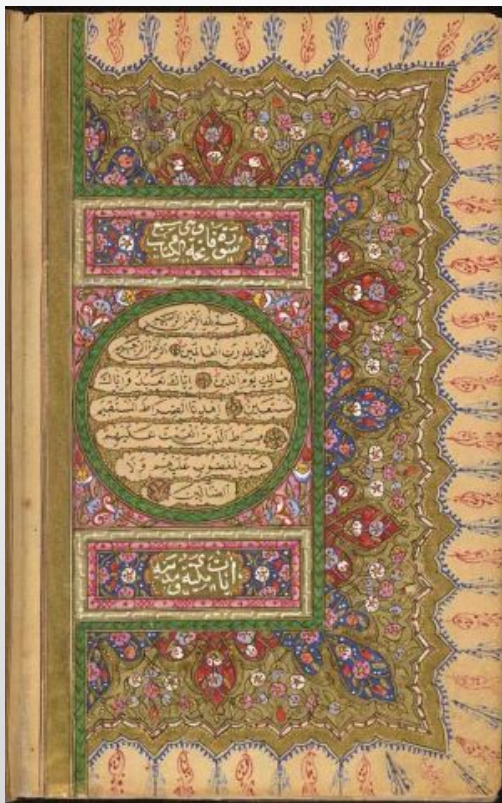 سورة فاتحة الكتاب وهي سبع
بسم الله الرحمن الرحيم
الحمد لله رب العالمين الرحمن الرحيم
مالك يوم الدين اياك نعبد واياك
نستعين اهدنا الصراط المستقيم
صراط الذين انعمت عليهم
غير المغضوب عليهم ولا
الضالين
ايات مكية